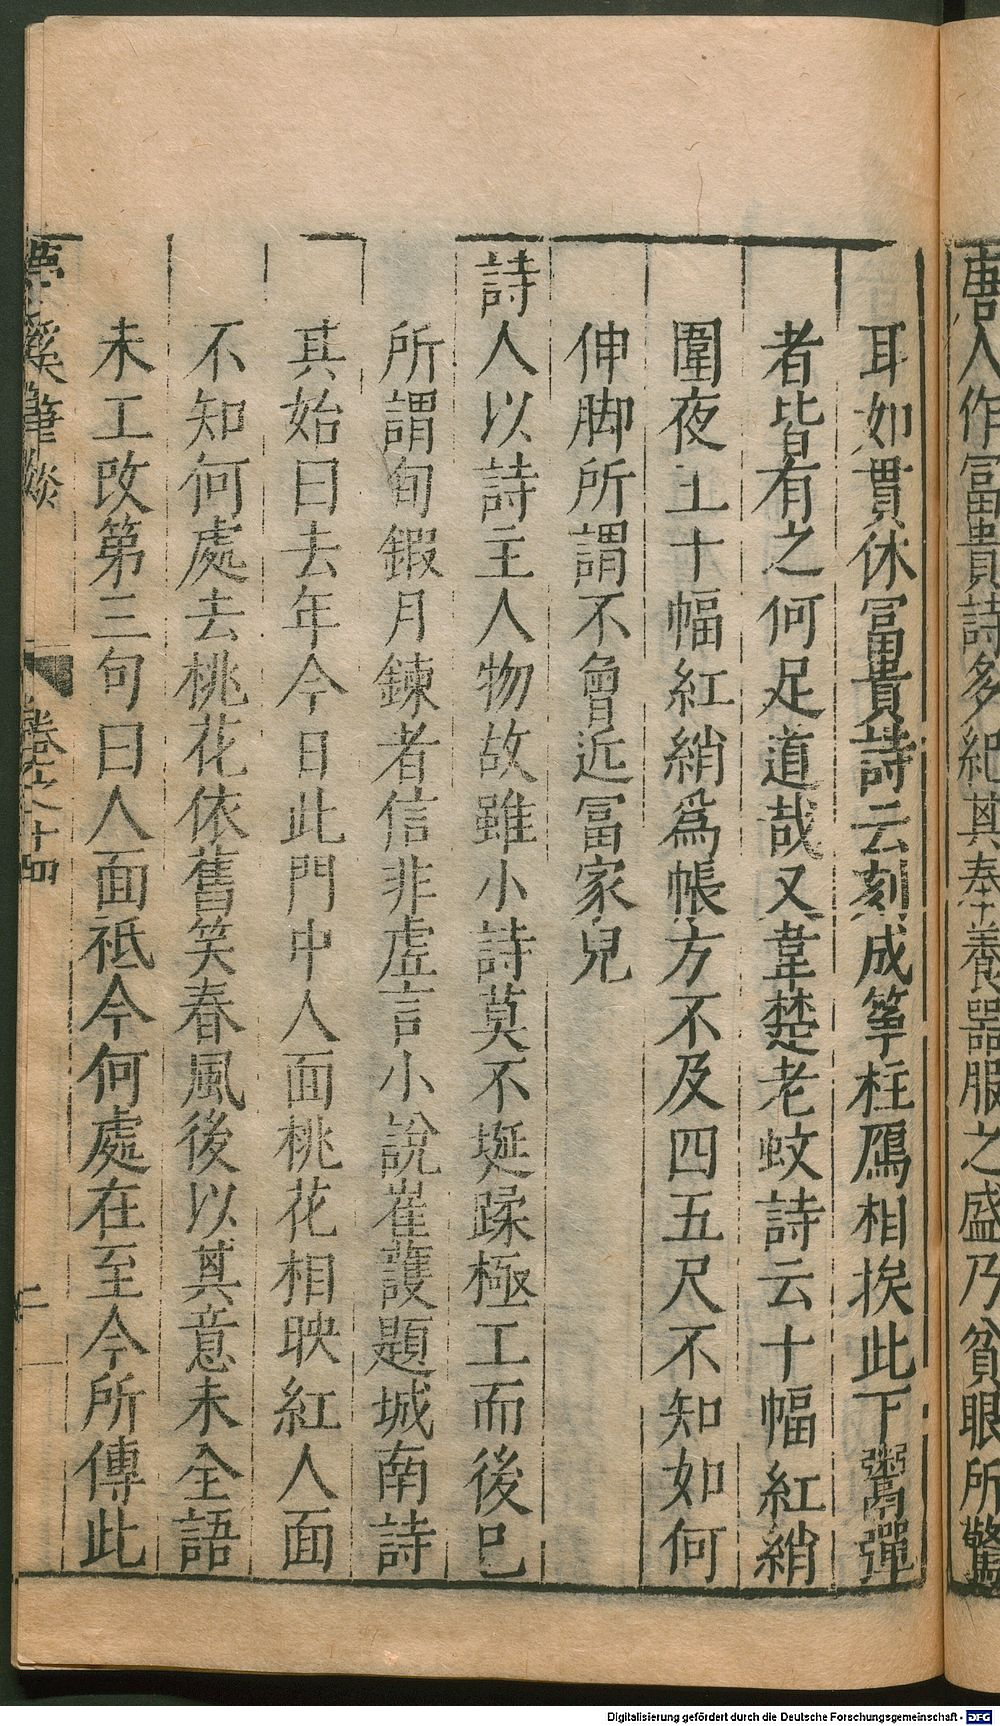 唐人作冨貴詩多紀其奉養器服之盛乃貧眼所驚
耳如貫休冨貴詩云刻成筝柱鴈相挨此下鬻彈
者皆有之何足道哉又韋楚老蚊詩云十幅紅綃
圍夜玉十幅紅綃爲帳方不及四五尺不知如何
伸脚所謂不曾近冨家兒
詩人以詩主人物故雖小詩莫不埏蹂極工而後已
所謂旬鍛月鍊者信非虚言小說崔護題城南詩
其始曰去年今日此門中人面桃花相映紅人面
不知何處去桃花依舊笑春風後以其意未全語
未工改第三句曰人面祗今何處在至今所傳此
夢溪筆談 卷之十四 二
Digitalisierung gefördert durch die Deutsche Forschungsgemeinschaft - DFG